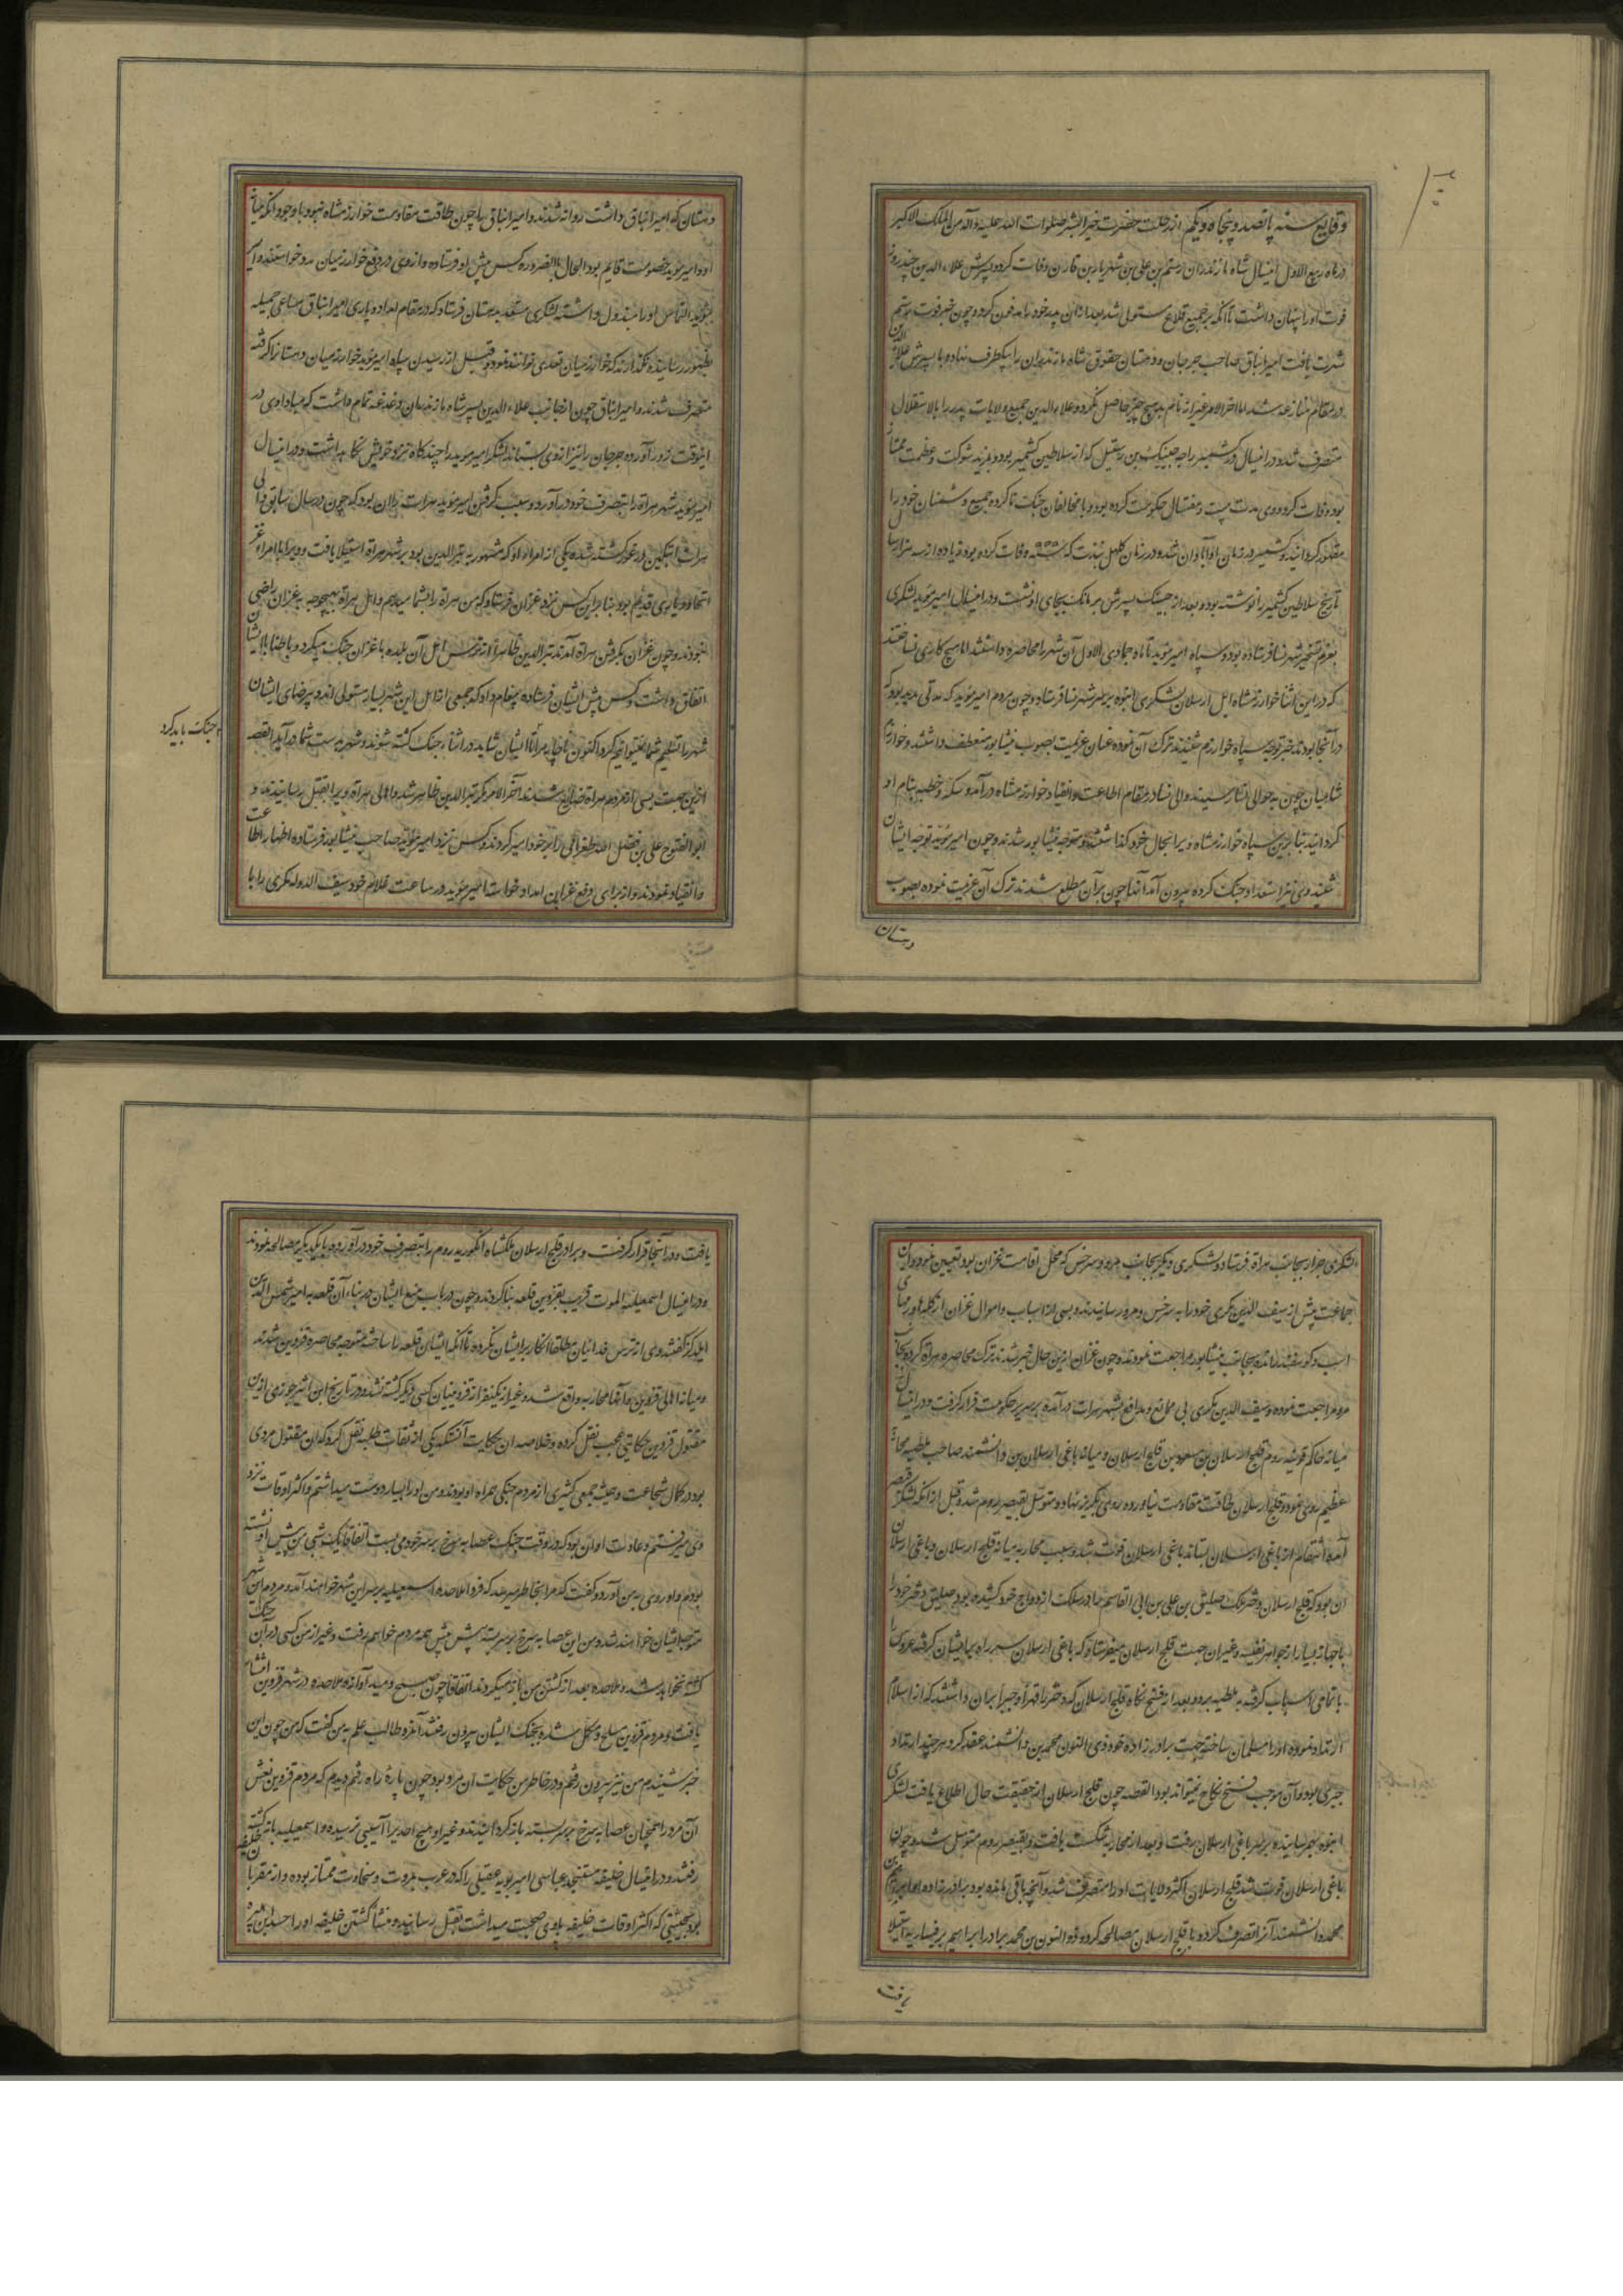 وقایع سنه پانصد و پنجاه و یکم از رحلت حضرت خیر البشر صلوات الله علیه و آله من الملک الاکبر
در ماه ربیع الاول اینسال شاه مازندران رستم بن علی بن شهریار بن قارن وفات کرد و پسرش علاء الدین چند روز
فوت او را پنهان داشت تا آنکه بر جمیع قلاع مستولی شد بعد از آن پدر خود را مدفون کرد و چون خبر فوت رستم
شهرت یافت امیر ایثاق صاحب جرجان و دهستان حقوق شاه مازندران را بیکطرف نهاده با پسرش علاء الدین
در مقام منازعه شد اما آخر الامر غیر از نام بد هیچ چیز حاصل نکرد و علاء الدین جمیع ولایات پدر را بالاستقلال
متصرف شد و در اینسال در کشمیر راجه جیسنک بن رستیل که از سلاطین کشمیر بود و بمزید شوکت و عظمت ممتاز
بود وفات کرد و وی مدت بیست و هفتسال حکومت کرده بود و با مخالفان جنک‌ها کرده جمیع دشمنان خود را
مقهور کردانید و کشمیر در زمان او آبادان شد و در زمان کلهل پندت که وفات کرده بود زیاده از سه هزار سال
تاریخ سلاطین کشمیر را نوشته بود و بعد از جیسنک پسرش پرمانک بجای او نشست و در اینسال امیر مؤید لشکری
بعزم تسخیر شهر نسا فرستاده بود و سپاه امیر مؤید تا ماه جمادی الاول آن شهر را محاصره داشتند اما هیچ کاری نساختند
که در این اثنا خوارزمشاه ایل ارسلان لشکری انبوه بر سر شهر نسا فرستاد و چون مردم امیر مؤید که مدتی مدید بود که
در آنجا بودند خبر توجه سپاه خوارزم شنیدند ترک آن نموده عنان عزیمت بصوب نیشابور منعطف داشتند و خوارزم
شاهیان چون به حوالی نسا رسیدند والی نسا در مقام اطاعت و انقیاد خوارزمشاه درآمد و سکه و خطبه بنام او
کردانید بنابرین سپاه خوارزمشاه ویرا بحال خود کذاشته متوجه نیشابور شدند و چون امیر مؤید توجه ایشان
شنید وی نیز استعداد جنک کرده بیرون آمد آنها چون بر آن مطلع شدند ترک آن عزیمت نموده بصوب
دهستان
دهستان که امیر ایثاق داشت روانه شدند و امیر ایثاق را چون طاقت مقاومت خوارزمشاه نبود با وجود آنکه میانه
او و امیر مؤید خصومت قایم بود الحال بالضروره کس پیش او فرستاده و از وی در دفع خوارزمیان مدد خواستند و امیر
مؤید التماس او را مبذول داشته لشکری مستعد بدهستان فرستاد که در مقام امداد و یاری امیر ایثاق مساعی جمیله
بظهور رسانیده نکذارند که خوارزمیان تعدی توانند نمود و قبل از رسیدن سپاه امیر مؤید خوارزمیان دهستان را کرفته
متصرف شدند و امیر ایثاق چون از جانب علاء الدین پسر شاه مازندران دغدغه تمام داشت که مبادا وی در
اینوقت زور آورده جرجان را نیز از وی بستاند لشکر امیر مؤید را چند کاه نزد خویش نکاه داشت و در اینسال
امیر مؤید شهر هراة را بتصرف خود درآورد و سبب کرفتن امیر مؤید هرات را آن بود که چون در سال سابق والی
هرات ایتکین در غور کشته شد یکی از امراء او که مشهور به اثیر الدین بود بر شهر هراة استیلا یافت و ویرا با امراء غز
اتحاد و یاری قدیم بود بنابراین کس نزد غزان فرستاد که من هراة را بشما میدهم و اهل هراة بهیچوجه به غزان راضی
نبودند و چون غزان بکرفتن هراة آمدند اثیر الدین ظاهرا از ترس اهل آن بلده با غزان جنک میکرد و باطنا با ایشان
اتفاق داشت و کس پیش ایشان فرستاده پیغام داد که جمعی از اهل این شهر بسیار مستولی‌اند و بی رضای ایشان
شهر را تسلیم شما نمیتوانیم کرد اکنون ناچار مرا با ایشان شاید در اثناء جنک کشته شوند و شهر بدست شما درآید القصه
جنک باید کرد
ازین جهت بسی از مردم هراة ضایع شدند آخر الامر مکر اثیر الدین ظاهر شد و اهالی هراة ویرا بقتل رسانیدند و
ابو الفتوح علی بن فضل الله طغرائی را بر خود امیر کردند و کس نزد امیر مؤید صاحب نیشابور فرستاده اظهار اطاعت
و انقیاد نمودند و از برای دفع غزان امداد خواست امیر مؤید در ساعت غلام خود سیف الدوله تکری را با
لشکری جرار بجانب هراة فرستاد و لشکری دیکر بجانب مرو و سرخس که محل اقامت غزان بود تعیین نمود و این
جماعت پیش از سیف الدین تکری خود را به سرخس و مرو رسانیدند و بسی از اسباب و اموال غزان از کلها و رمهای
اسب و کوسفند رانده بجانب نیشابور مراجعت نمودند و چون غزان ازین حال خبر شدند ترک محاصره هراة کرده بجانب
مرو مراجعت نموده و سیف الدین تکری بی موانع و مدافع بشهر هرات درآمده بر سریر حکومت قرار کرفت و در اینسال
میانه حاکم قونیه روم قلج ارسلان بن مسعود بن قلج ارسلان و میانه یاغی ارسلان بن دانشمند صاحب ملطیه محاربه
عظیم روی نمود و قلج ارسلان طاقت مقاومت نیاورده روی بکریز نهاد و متوسل بقیصر روم شد و قبل از آنکه لشکر قیصر
آمده انتقام از یاغی ارسلان بستاند یاغی ارسلان فوت شد و سبب محاربه میانه قلج ارسلان و یاغی ارسلان
آن بود که قلج ارسلان دختر ملک صلیق بن علی بن ابی القاسم را در سلک ازدواج خود کشیده بود و صلیق دختر خود را
با جهاز بسیار از جواهر نفیسه و غیر آن جهت قلج ارسلان میفرستاد که یاغی ارسلان سر راه بر ایشان کرفته عروس را
با تمامی اسباب کرفته به ملطیه برد و بعد از فسخ نکاح قلج ارسلان که دختر را قهرا و جبرا بر آن داشتند که از اسلام
ارتداد نموده او را مسلمان ساخته جهت برادرزاده خود ذی النون محمد بن دانشمند عقد کرد هر چند ارتداد
جبری بود و آن موجب فسخ نکاح نمیتواند بود القصه چون قلج ارسلان از حقیقت حال اطلاع یافت لشکری
انبوه بهم رسانیده بر سر یاغی ارسلان رفت و بعد از محاربه شکست یافت و بقیصر روم متوسل شد و چون
یاغی ارسلان فوت شد قلج ارسلان اکثر ولایات او را متصرف شد و آنچه باقی مانده بود برادرزاده او ابراهیم بن
محمد دانشمند آنرا تصرف کرده با قلج ارسلان مصالحه کرد و ذو النون بن محمد برادر ابراهیم بر قیساریه استیلا
یافت
یافت و در آنجا قرار کرفت و برادر قلج ارسلان ملکشاه انکوریه روم را بتصرف خود درآورد و با یکدیکر مصالحه نمودند
و در اینسال اسمعیلیه الموت قریب بقزوین قلعه بنا کردند و چون در باب منع ایشان در بناء آن قلعه به امیر شمس الدین
ایلدکز کفتند وی از ترس فدائیان مطلقا انکار بر ایشان نکرده تا آنکه ایشان قلعه را ساخته متوجه محاصره قزوین شدند
و میانه اهالی قزوین و آنها محاربه واقع شد و غیر از یکنفر از قزوینیان کسی دیکر کشته نشد و در تاریخ ابن اثیر جزری ازین
مقتول قزوین حکایتی عجیب نقل کرده و خلاصه آن حکایت آنستکه یکی از ثقات طلبه نقل کرد که آن مقتول مردی
بود در کمال شجاعت و همیشه جمعی کثیری از مردم جنکی همراه او بودند و من او را بسیار دوست میداشتم و اکثر اوقات نزد
وی میرفتم و عادت او آن بود که در وقت جنک عصابه سرخ بر سر خود می بست اتفاقا یک شبی من پیش او نشسته
بودم و او روی به من آورد و کفت که مرا بخاطر میرسد که فردا ملاحده اسمعیلیه بر سر این شهر خواهند آمد و مردم این شهر
متوجه ایشان خواهند شد و من این عصابه سرخ بر سر بسته پیش پیش همه مردم خواهم رفت و غیر از من کسی در آن جنک
کشته نخواهد شد و ملاحده بعد از کشتن من باز میکردند اتفاقا چون صبح دمید آوازه ملاحده در شهر قزوین انتشار
یافت و مردم قزوین مسلح و مکمل شده بجنک ایشان بیرون رفتند آنمرد طالب علم به من کفت که من چون این
خبر شنیدم من نیز بیرون رفتم و در خاطر من حکایت آن مرد بود چون پارهٔ راه رفتم دیدم که مردم قزوین نعش
آن مرد را همچنان عصابه سرخ بر سر بسته باز کردانیدند و غیر او هیچ احدیرا آسیبی نرسیده و اسمعیلیه باز کشته
رفتند و در اینسال خلیفه مستنجد عباسی امیر بویه عقیلی را که در عرب بمروت و سخاوت ممتاز بوده و از مقربان خلیفه
بود بحیثیتی که اکثر اوقات خلیفه با وی صحبت میداشت بقتل رسانید و منشأ کشتن خلیفه او را حسد ابن هبیره